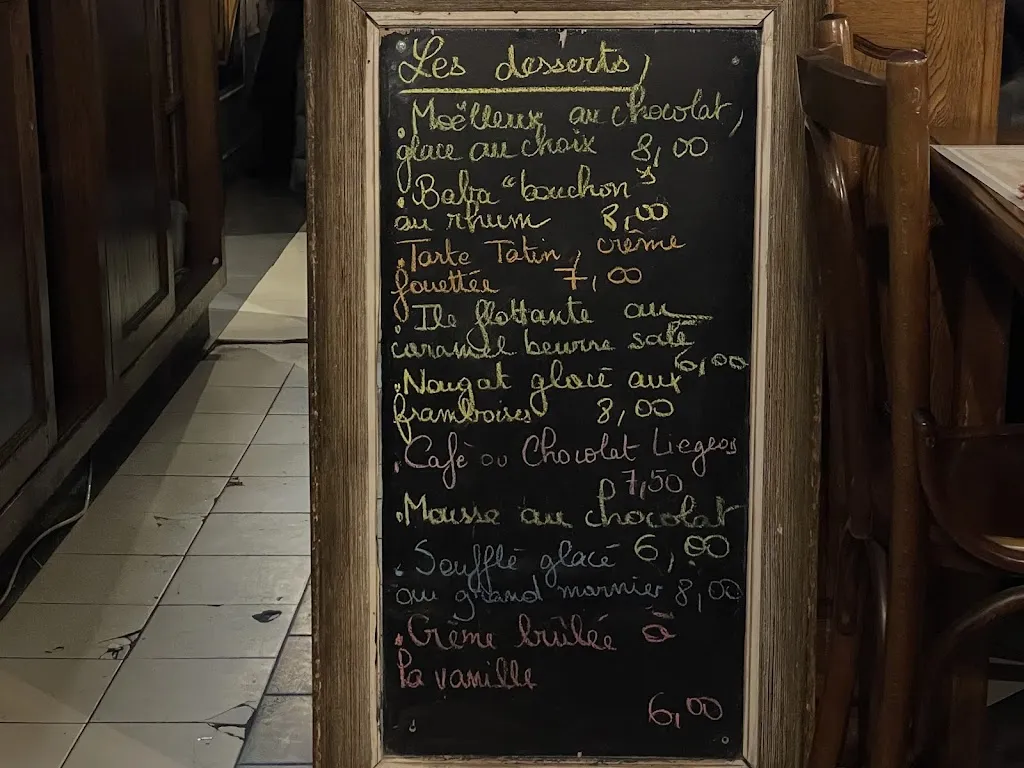 Les desserts,
. Moëlleux au chocolat,
glace au choix 8,00
. Baba "bouchon"
au rhum 8,00
. Tarte Tatin, crème
fouettée 7,00
. Ile flottante au
caramel beurre salé
6,00
. Nougat glacé aux
framboises 8,00
. Café ou Chocolat Liegeois
7,50
. Mousse au chocolat
6,00
. Soufflé glacé
au grand marnier 8,00
. Crème brûlée à
la vanille
6,00